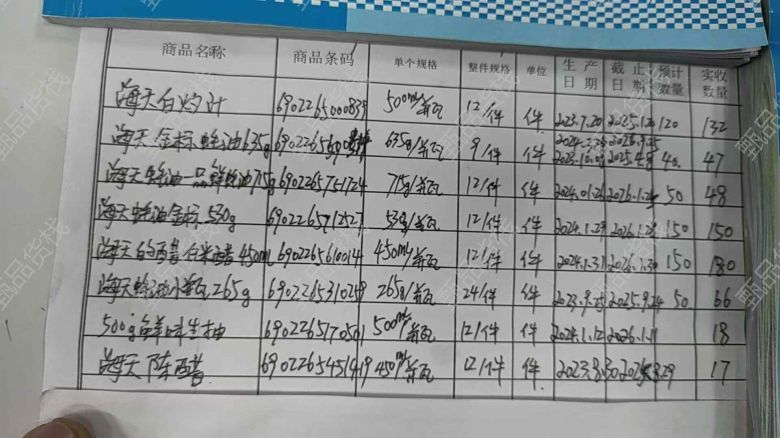 商品名称 商品条码 单个规格 整件规格 单位 生产日期 截止日期 预计数量 实收数量
海天白灼汁 6902265000839 500ml/瓶 12/件 件 2023.7.20 2025.1.20 120 132
海天金标蚝油635g 635g/瓶 9/件 件 40 47
海天蚝油一品鲜蚝油715g 6902265751724 715g/瓶 12/件 件 50 48
海天蚝油金标530g 6902265711527 530g/瓶 12/件 件 2024.1.29 2026.1.28 150 150
海天白米醋450ml 6902265610014 450ml/瓶 12/件 件 2024.1.31 2026.1.30 150 180
海天蚝油小瓶265g 6902265310248 265g/瓶 24/件 件 2023.9.25 2025.9.24 50 66
500g鲜味生抽 6902265170561 500ml/瓶 12/件 件 2024.1.12 2026.1.11 18
海天陈醋 6902265451419 450ml/瓶 12/件 件 2023.8.30 17
甄品货栈